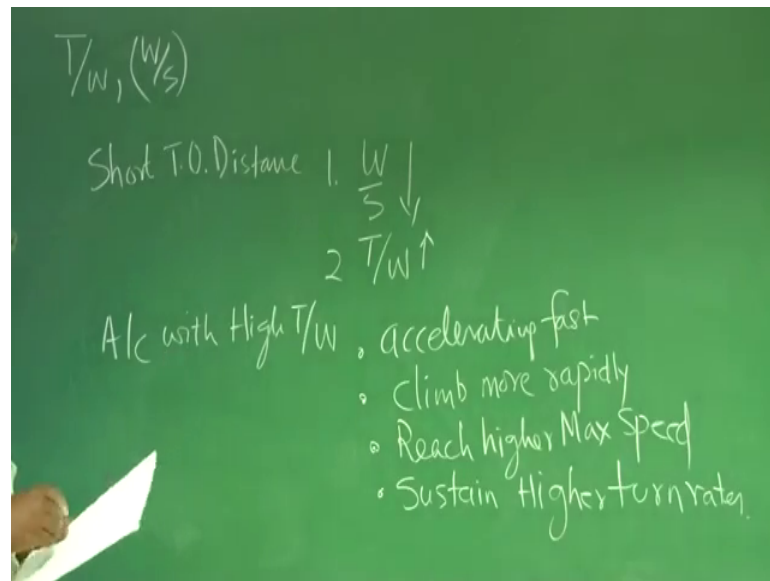 T/W, (W/S)
Short T.O. Distance 1. W/S ↓
2 T/W ↑
A/c with High T/W . accelerating fast
• Climb more rapidly
• Reach higher Max Speed
• Sustain Higher turn rates.